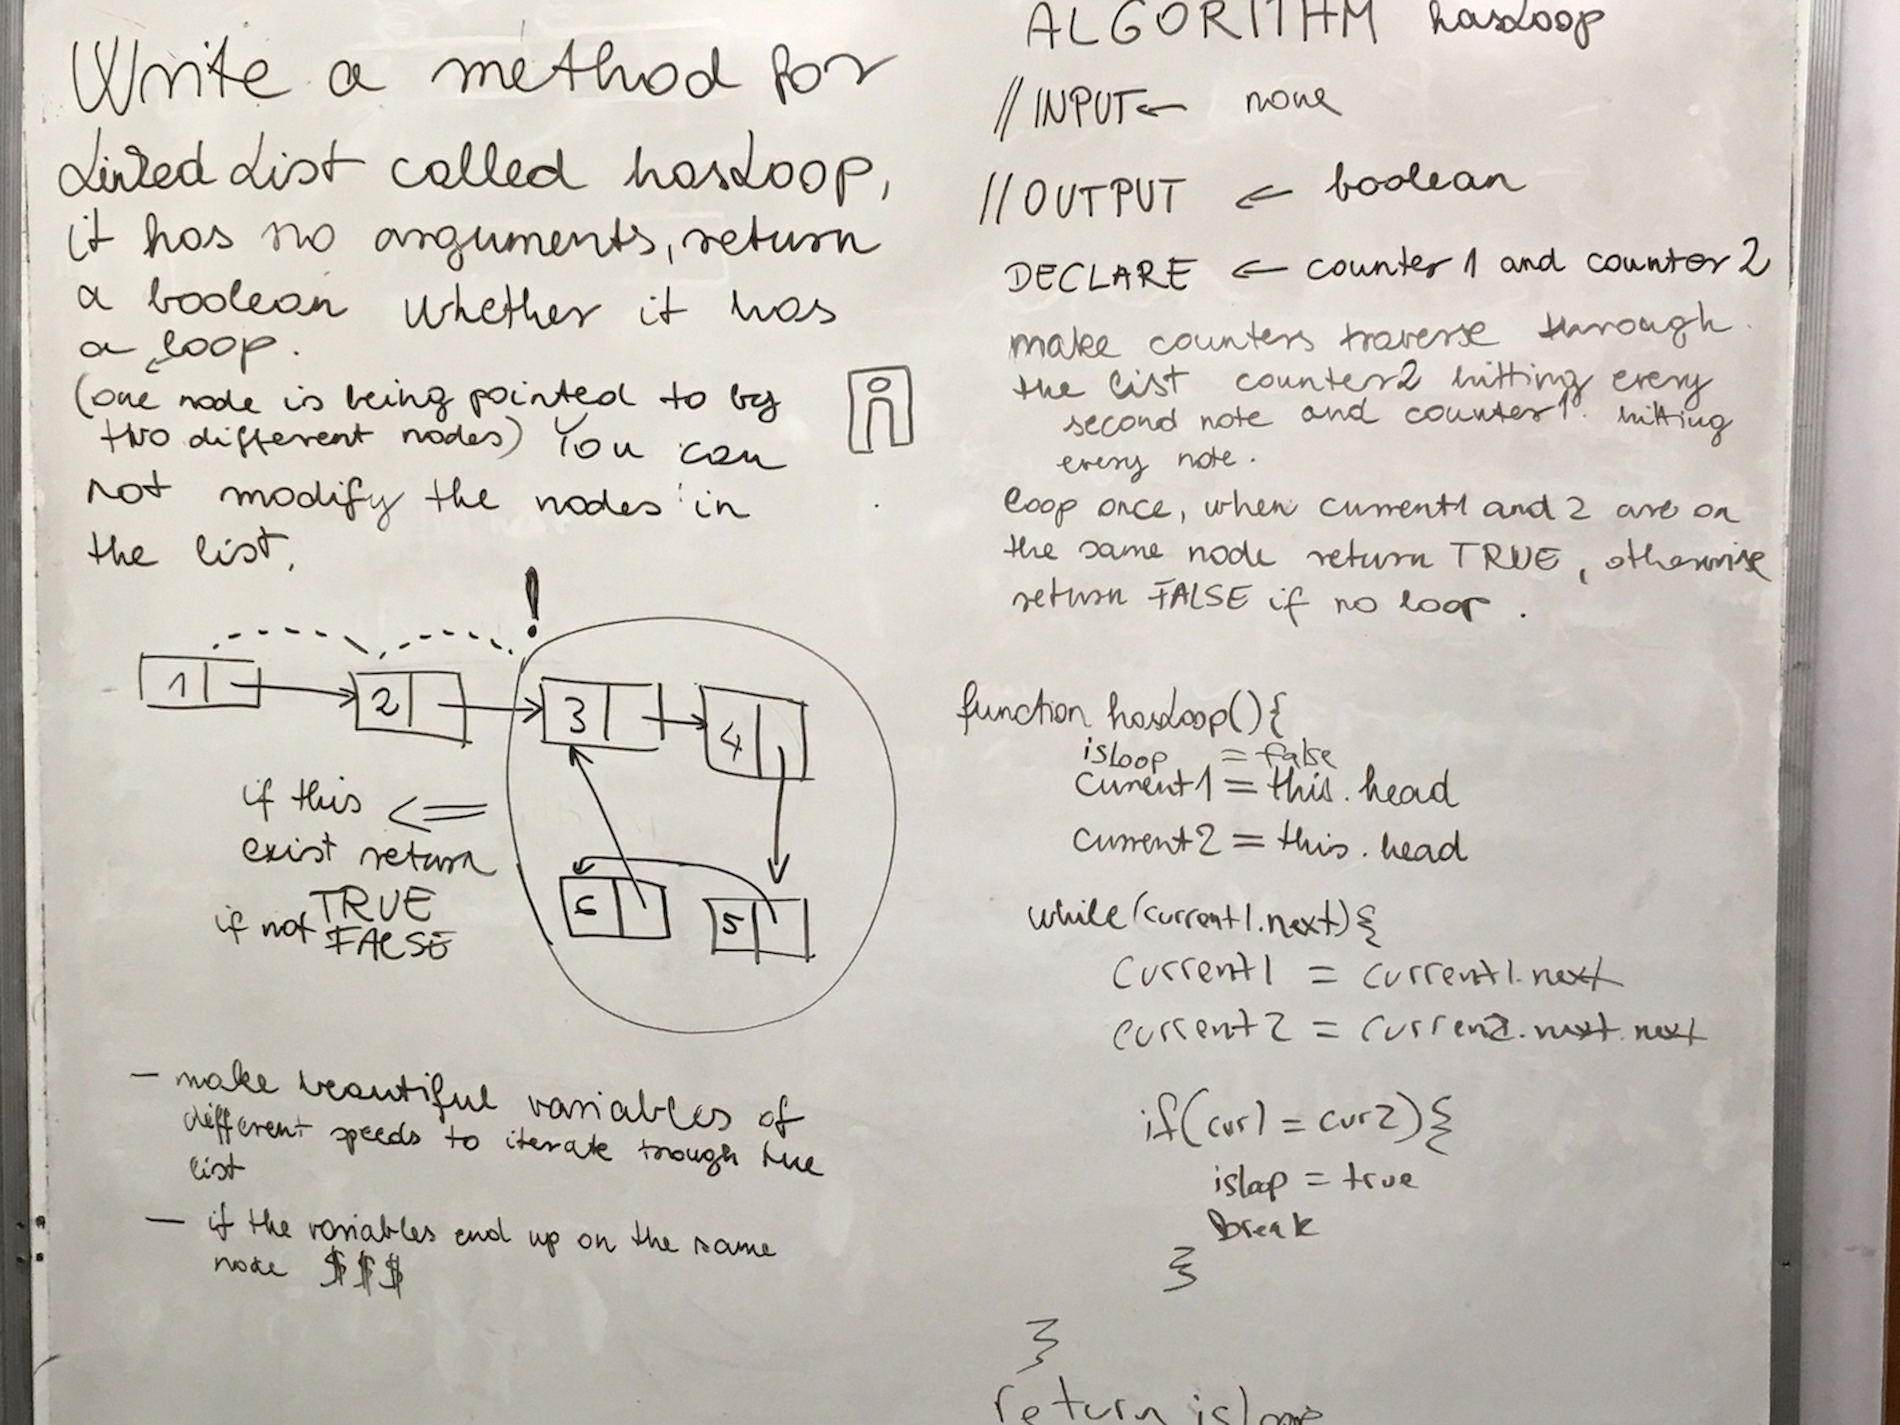 Write a method for
Linked List called hasLoop,
it has no arguments, return
a boolean whether it has
a loop.
(one node is being pointed to by
two different nodes) You can
not modify the nodes in
the list.
!
1
2
3
4
6
5
if this <=
exist return
TRUE
if not FALSE
- make beautiful variables of
different speeds to iterate trough the
list
- if the variables end up on the same
node $$$
ALGORITHM hasLoop
// INPUT ← none
// OUTPUT ← boolean
DECLARE ← counter 1 and counter 2
make counters traverse through
the list counter2 hitting every
second note and counter1 hitting
every note.
loop once, when current1 and 2 are on
the same node return TRUE, otherwise
return FALSE if no loop.
function hasLoop(){
isLoop = false
current1 = this.head
current2 = this.head
while(current1.next){
current1 = current1.next
current2 = curren2.next.next
if(cur1 = cur2){
isloop = true
Break
}
}
return isloop